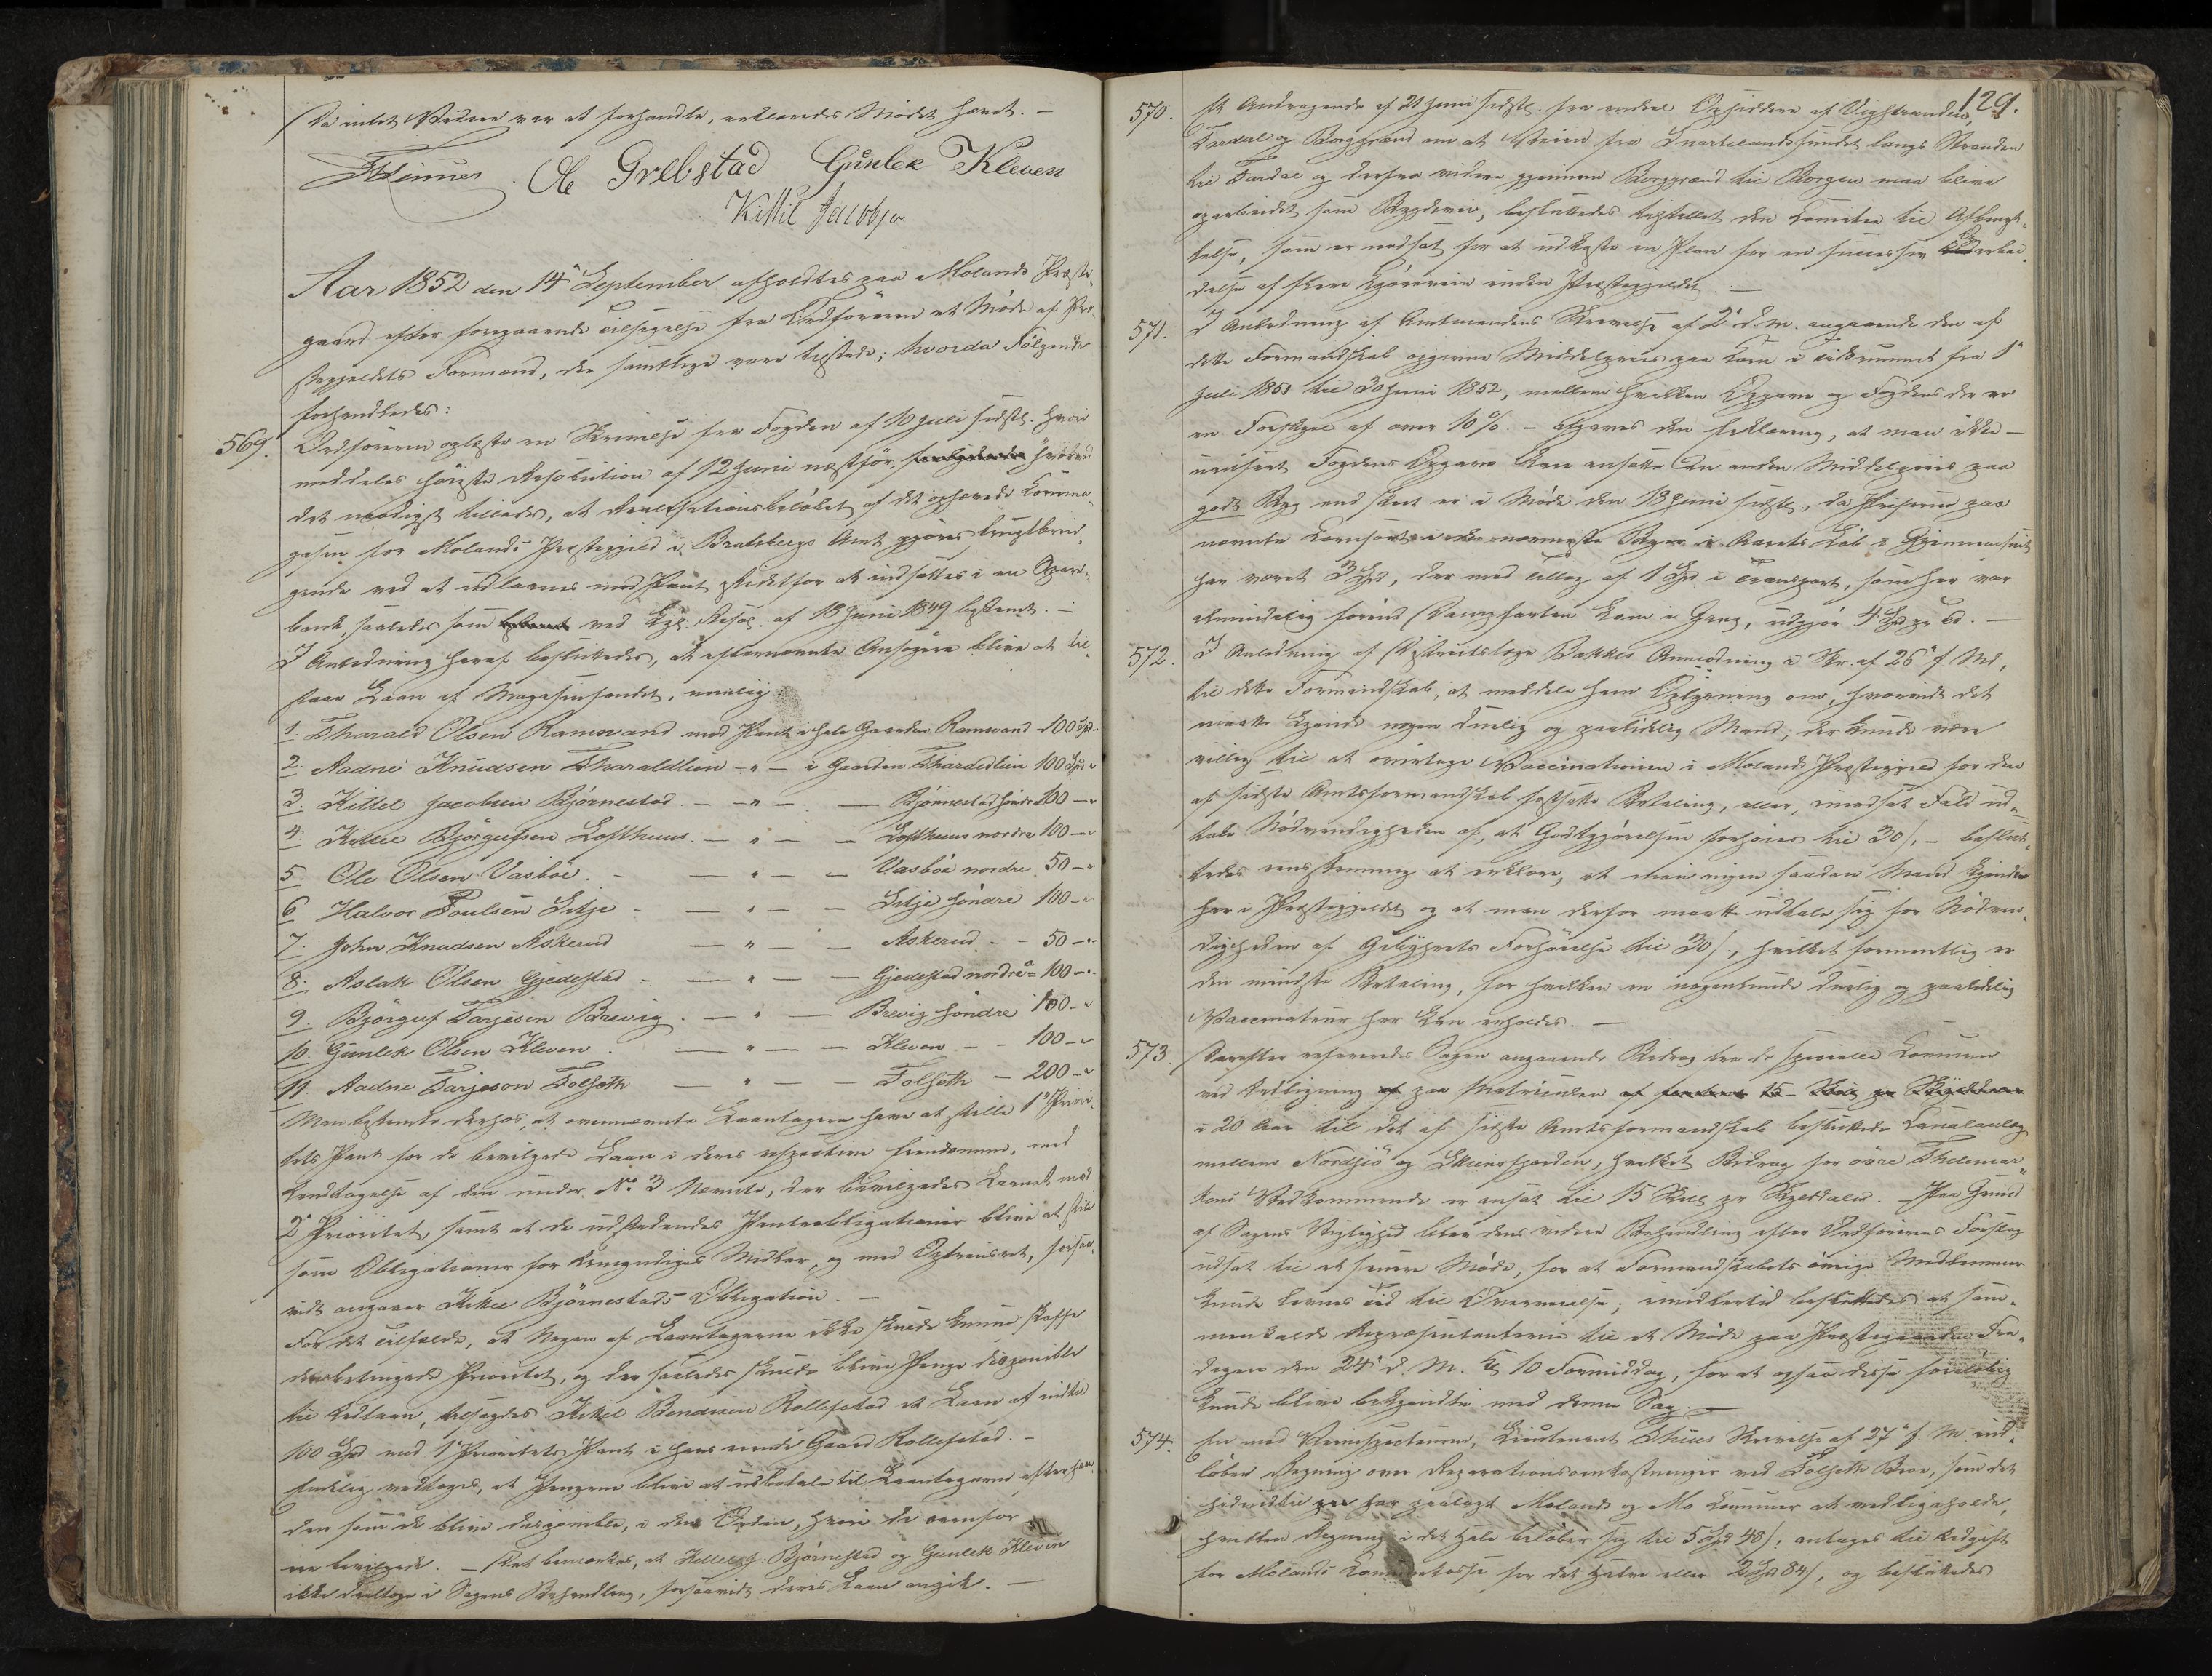 Da intet Videre var at forhandle, erklæredes Mødet hævet. –
O Grebstad Gunlek Kleven
Kittil Jacobsen
Aar 1852 den 14de September afholdtes paa Molands Præste-
gaard efter foregaaende Tilsigelse fra Ordføreren et Møde af Præ-
stegjeldets Formænd, der samtlige vare tilstede; hvorda Følgende
forhandledes:
569. Ordføreren oplæste en Skrivelse fra Fogden af 10 Juli sidstl. hvori
meddeles høieste Resolution af 12 Juni næstfør, hvorved
det naadigst tillades, at Realisationsbeløbet af det ophævede Kornma-
gasin for Molands Præstegjeld i Bratsbergs Amt gjøres frugtbrin-
gende ved at udlaanes mod Pant istedetfor at indsættes i en Spare-
bank, saaledes som ved Kgl. Resol. af 18 Juni 1849 bestemt. –
I Anledning heraf besluttedes, at efternævnte Ansøgere blive at til-
staae Laan af Magasinfondet, nemlig:
1. Tharald Olsen Ramvand mod Pant i hele Gaarden Ramvand 100 Spd.
2. Aadne Knudsen Tharaldlien – " – i Gaarden Tharaldlien 100 Spd "
3. Kittel Jacobsen Bjørnestad – " – – Bjønnestad søndre 100 – "
4. Kittel Bjørgufsen Lofthuus. – " – – Lofthuus nordre 100 – "
5. Ole Olsen Vasbøe. – – " – – Vasbøe nordre 50 – "
6 Halvor Poulsen Sitje – – " – – Sitje søndre 100 – "
7. John Knudsen Askerud – " – – Askerud – – 50 – "
8. Aslak Olsen Gjedestad – – " – – Gjedestad nordre 100 – "
9. Bjørguf Tarjesen Brevig. – " – – Brevig søndre 100 – "
10. Gunlek Olsen Kleven – " – – Kleven – – 100 – "
11. Aadne Tarjeson Folseth – " – – Folseth – 200 – "
Man bestemte derhos, at ovennævnte Laantagere have at stille 1ste Priori-
tets Pant for de bevilgede Laan i deres respective Eiendomme, med
Undtagelse af den under No 3 Nævnte, der bevilgedes Laanet mod
2den Prioritet, samt at de udstedendes Panteobligationer blive at stile
som Obligationer for Umyndiges Midler, og med Opreisret, forsaa-
vidt angaaer Kittel Bjørnestads Obligation. –
For det Tilfælde, at Nogen af Laantagerne ikke skulde kunne skaffe
den betingede Prioritet, og der saaledes skulde blive Penge disponible
til Udlaan, tilsagdes Kittel Bendixen Rollefstad et Laan af indtil
100 Spd mod 1ste Prioritets Pant i hans eiende Gaard Rollefstad. –
Endelig vedtoges, at Pengene blive at udbetale til Laantagerne efterhaan-
den som de blive disponible, i den Orden, hvori de ovenfor
ere bevilgede. – Det bemærkes, at Kittel J. Bjørnestad og Gunlek Kleven
ikke deeltoge i Sagens Behandling, forsaavidt deres Laan angik. –
129.
570. Et Andragende af 21 Juni sidstl. fra endeel Opsiddere af Vigstranden,
Tardal og Borggrænd om at Veien fra Snartelandssundet langs Stranden
til Tardal og derfra videre gjennem Borggrænd til Borgen maa blive
oparbeidet som Bygdevei, besluttedes tilstillet den Comitee til Afbenyt-
telse, som er nedsat for at udkaste en Plan for en successiv Oparbei-
delse af flere Kjøreveie inden Præstegjeldet. –
571. I Anledning af Amtmandens Skrivelse af 2den d. M. angaaende den af
dette Formandskab opgivne Middelpriis paa Korn i Tidsrummet fra 1ste
Juli 1851 til 30 Juni 1852, mellem hvilken Opgave og Fogdens der er
en Forskjel af over 10 % – afgaves den Erklæring, at man ikke –
uanseet Fogdens Opgave kan ansætte en anden Middelpriis paa
godt Byg end skeet er i Møde den 18 Juni sidstl., da Priserne paa
nævnte Kornsort i den nærmeste Byen i Aarets Løb i Gjennemsnit
har været 3 Spd, der med Tillæg af 1 Spd i Transport, som her var
almindelig førend Dampfarten kom i Gang, udgjør 4 Spd pr Td. –
572. I Anledning af Districtslæge Bakkes Anmodning i Skr. af 26de f. Md,
til dette Formandskab, at meddele ham Oplysning om, hvorvidt det
maatte kjende nogen duelig og paalidelig Mand, der kunde være
villig til at overtage Vaccinationen i Molands Præstegjeld for den
af sidste Amtsformandskab fastsatte Betaling, eller, i modsat Fald ud-
tale Nødvendigheden af, at Godtgjørelsen forhøies til 30 ß, – beslut-
tedes eenstemmig at erklære, at man ingen saadan Mand kjender
her i Præstegjeldet og at man derfor maatte udtale sig for Nødven-
digheden af Gebyhrets Forhøielse til 30 ß, hvilket formentlig er
den mindste Betaling, for hvilken en nogenlunde duelig og paalidelig
Vaccinateur her kan erholdes. –
573. Derefter refereredes Sagen angaaende Bidrag fra de specielle Communer
ved Udligning paa Matriculen
i 20 Aar til det af sidste Amtsformandskab besluttede Canalanlæg
mellem Nordsjø og Skiensfjorden, hvilket Bidrag for øvre Thelemar-
kens Vedkommende er ansat til 15 Skill pr Skylddaler. – Paa Grund
af Sagens Vigtighed blev dens videre Behandling efter Ordførerens Forslag
udsat til et senere Møde, for at Formandskabets øvrige Medlemmer
kunde levnes Tid til Overveielse; imidlertid besluttedes at sam-
menkalde Repræsentanterne til et Møde paa Præstegaarden Fre-
dagen den 24de d. M. Kl 10 Formiddag, for at ogsaa disse foreløbig
kunde blive bekjendte med denne Sag. –
574. En med Veiinspecteuren, Lieutenant Thues Skrivelse af 27de f. M ind-
løben Regning over Reparationsomkostninger ved Folseth Broe, som det
hidindtil har paalagt Molands og Mo Communer at vedligeholde,
hvilken Regning i det Hele beløber sig til 5 Spd 48 ß, antages til Udgift
for Molands Communekasse for det Halve eller 2 Spd 84 ß, og besluttedes